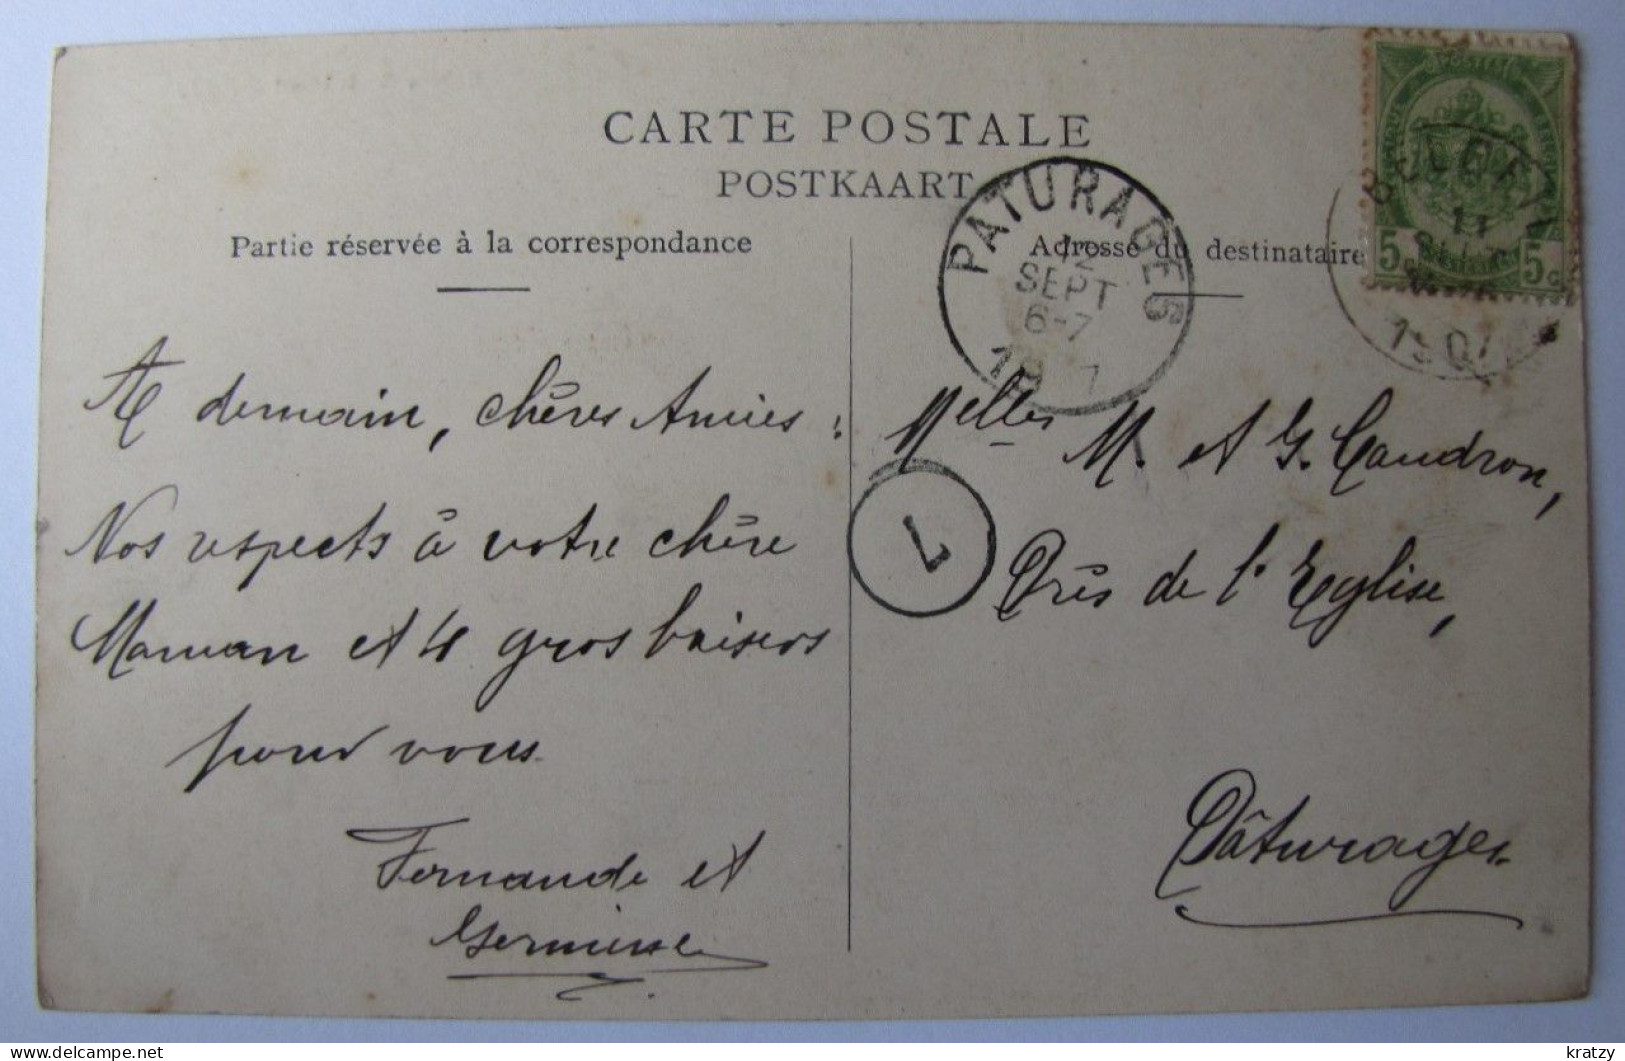 CARTE POSTALE
POSTKAART
Partie réservée à la correspondance
Adresse du destinataire
PATURAGES
12
SEPT
6-7
POSTES
5c 5c
11
1907
A demain, chères Amies!
Nos respects à votre chère
Maman et 4 gros baisers
pour vous.
Fernande et
Germaine
Melles M. et G. Caudron,
7
Près de l'Eglise,
Pâturages.
kratzy